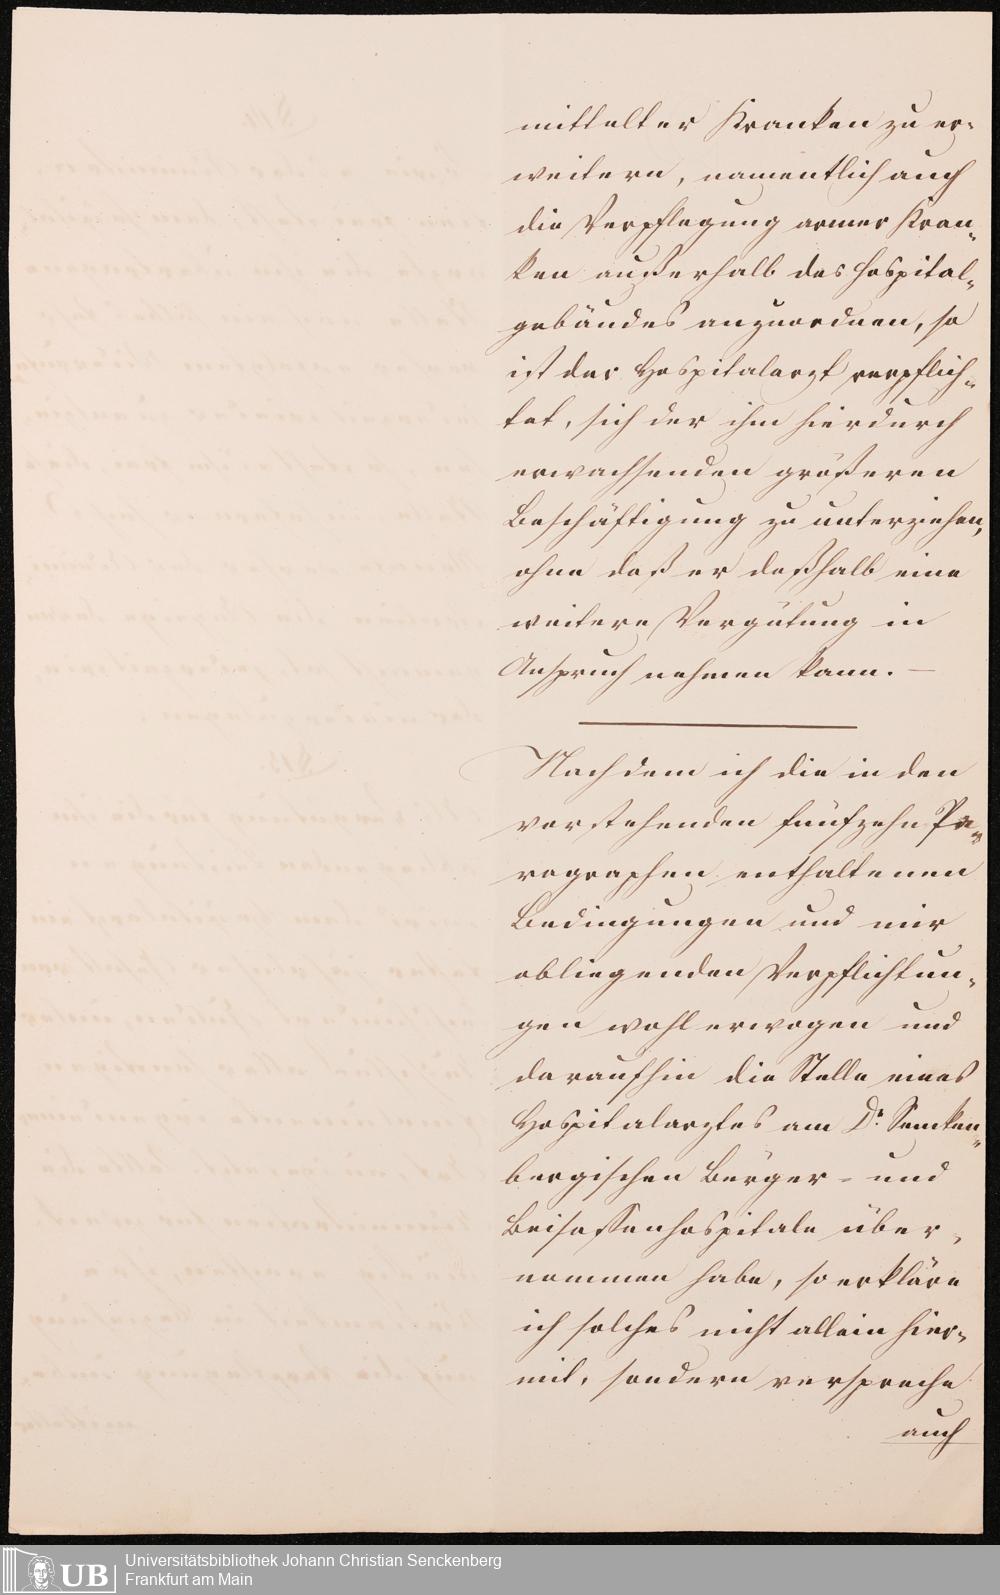 mittelter Kranken zu er-
weitern, namentlich auch
die Verpflegung armer Kran-
ken außerhalb des Hospital-
gebäudes anzuordnen, so
ist der Hospitalarzt verpflich-
tet, sich der ihm hierdurch
erwachsenden größeren
Beschäftigung zu unterziehen,
ohne daß er deßhalb eine
weitere Vergütung in
Anspruch nehmen kann. —
Nachdem ich die in den
vorstehenden fünfzehn Pa-
ragraphen enthaltenen
Bedingungen und mir
obliegenden Verpflichtun-
gen wohl erwogen und
daraufhin die Stelle eines
Hospitalarztes am Dr. Senken-
bergischen Bürger- und
Beisassenhospitale über-
nommen habe, so erkläre
ich solches nicht allein hier-
mit, sondern verspreche
auch
UB
Universitätsbibliothek Johann Christian Senckenberg
Frankfurt am Main